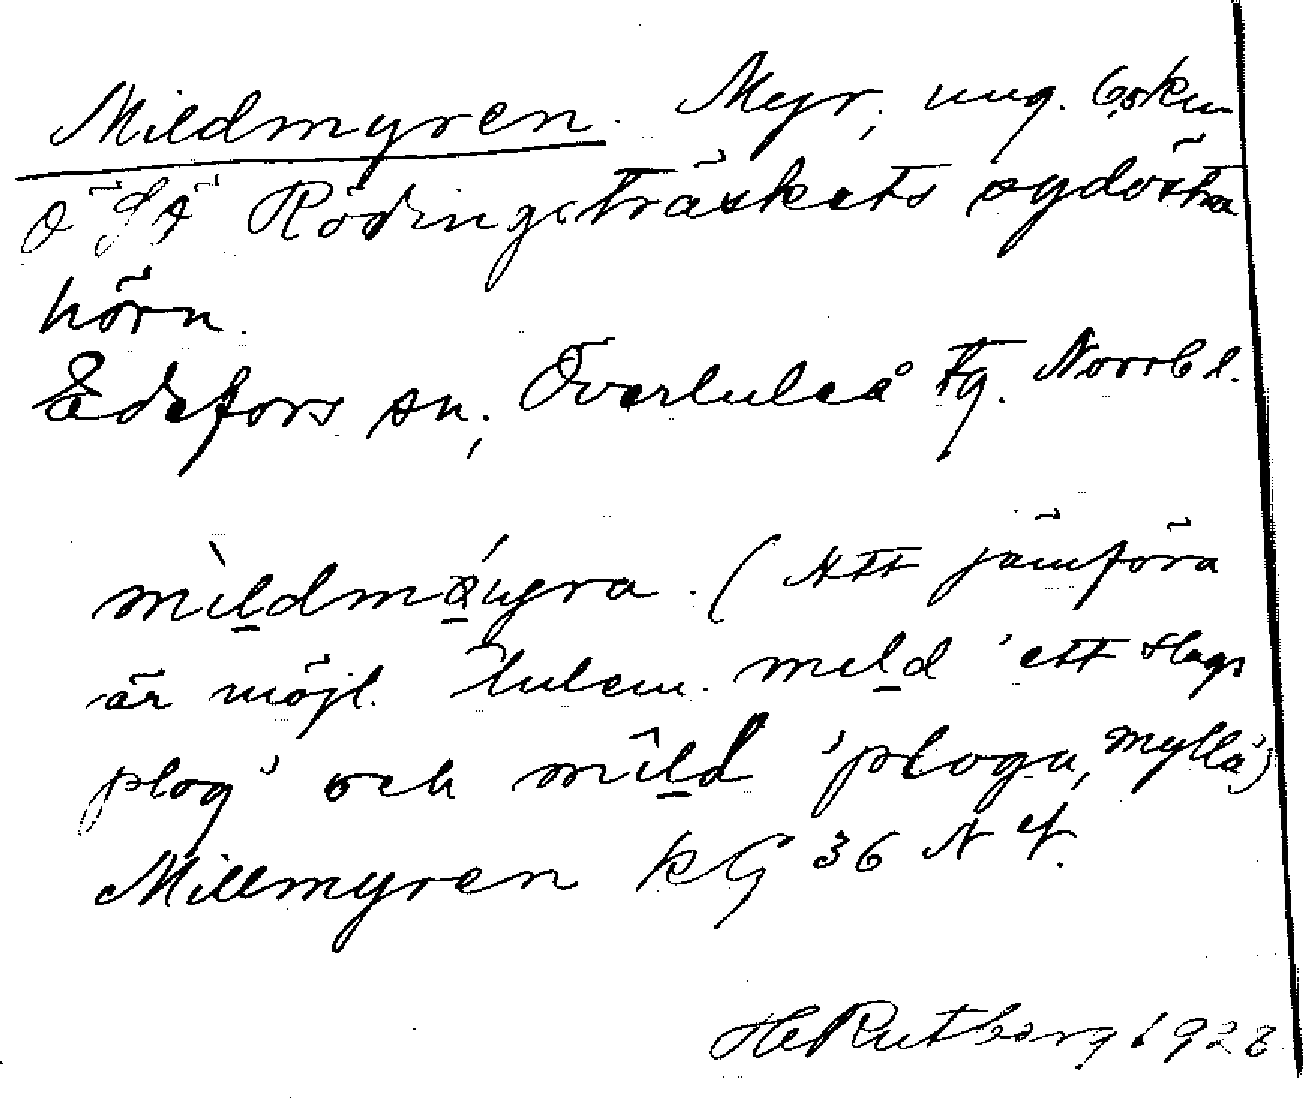 Mildmyren. Myr, ung. 6,5 km
Ö SÖ Rödingsträskets sydöstra
hörn.
Edefors sn, Överluleå tg. Norrb l.
mìldmǿygra. (Att jämföra
är möjl. lulem. mild 'ett slags
plog' och mîld 'ploga, mylla')
Millmyren KG 36 NV.
HelRutberg 1928